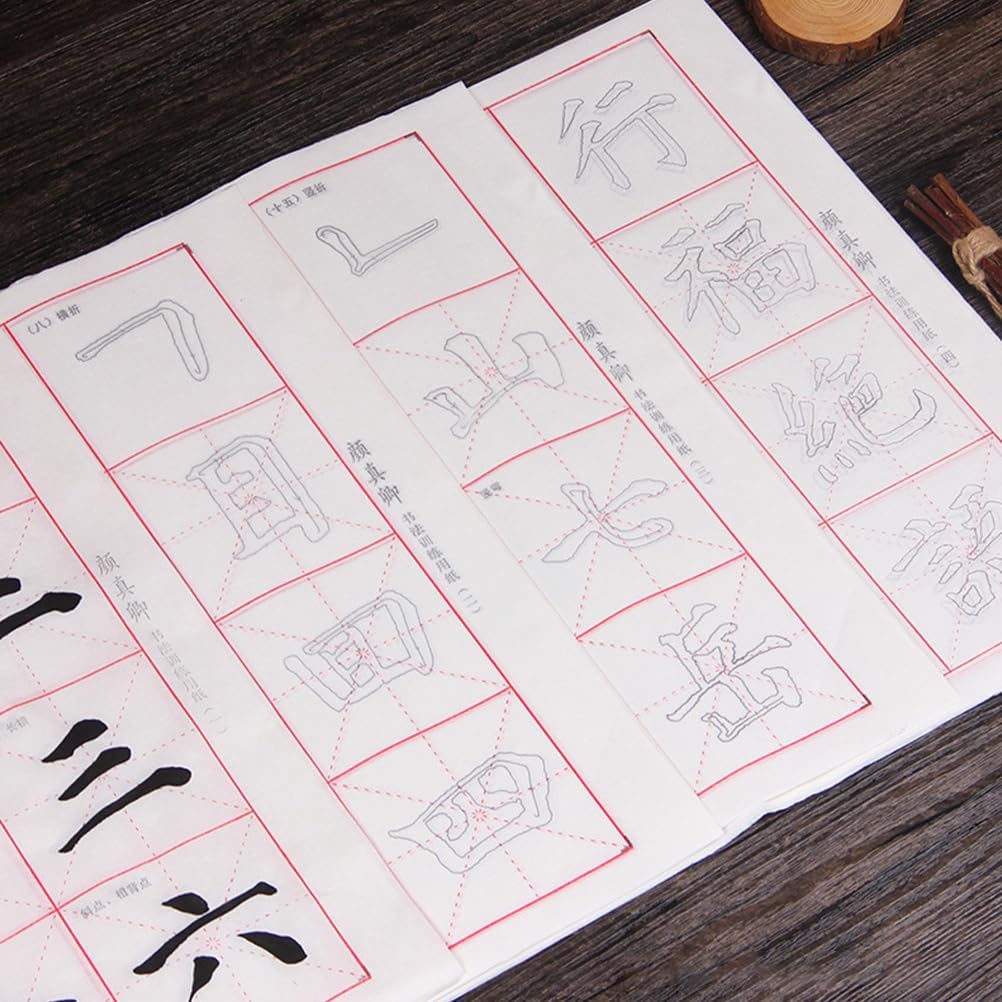 二
长横
三
斜点、相背点
六
颜真卿 书法训练用纸(一)
(八)横折
目
回
四
颜真卿 书法训练用纸(二)
(十五)竖折
山
七
岳
颜真卿 书法训练用纸(三)
行
福
绝
语
颜真卿 书法训练用纸(四)